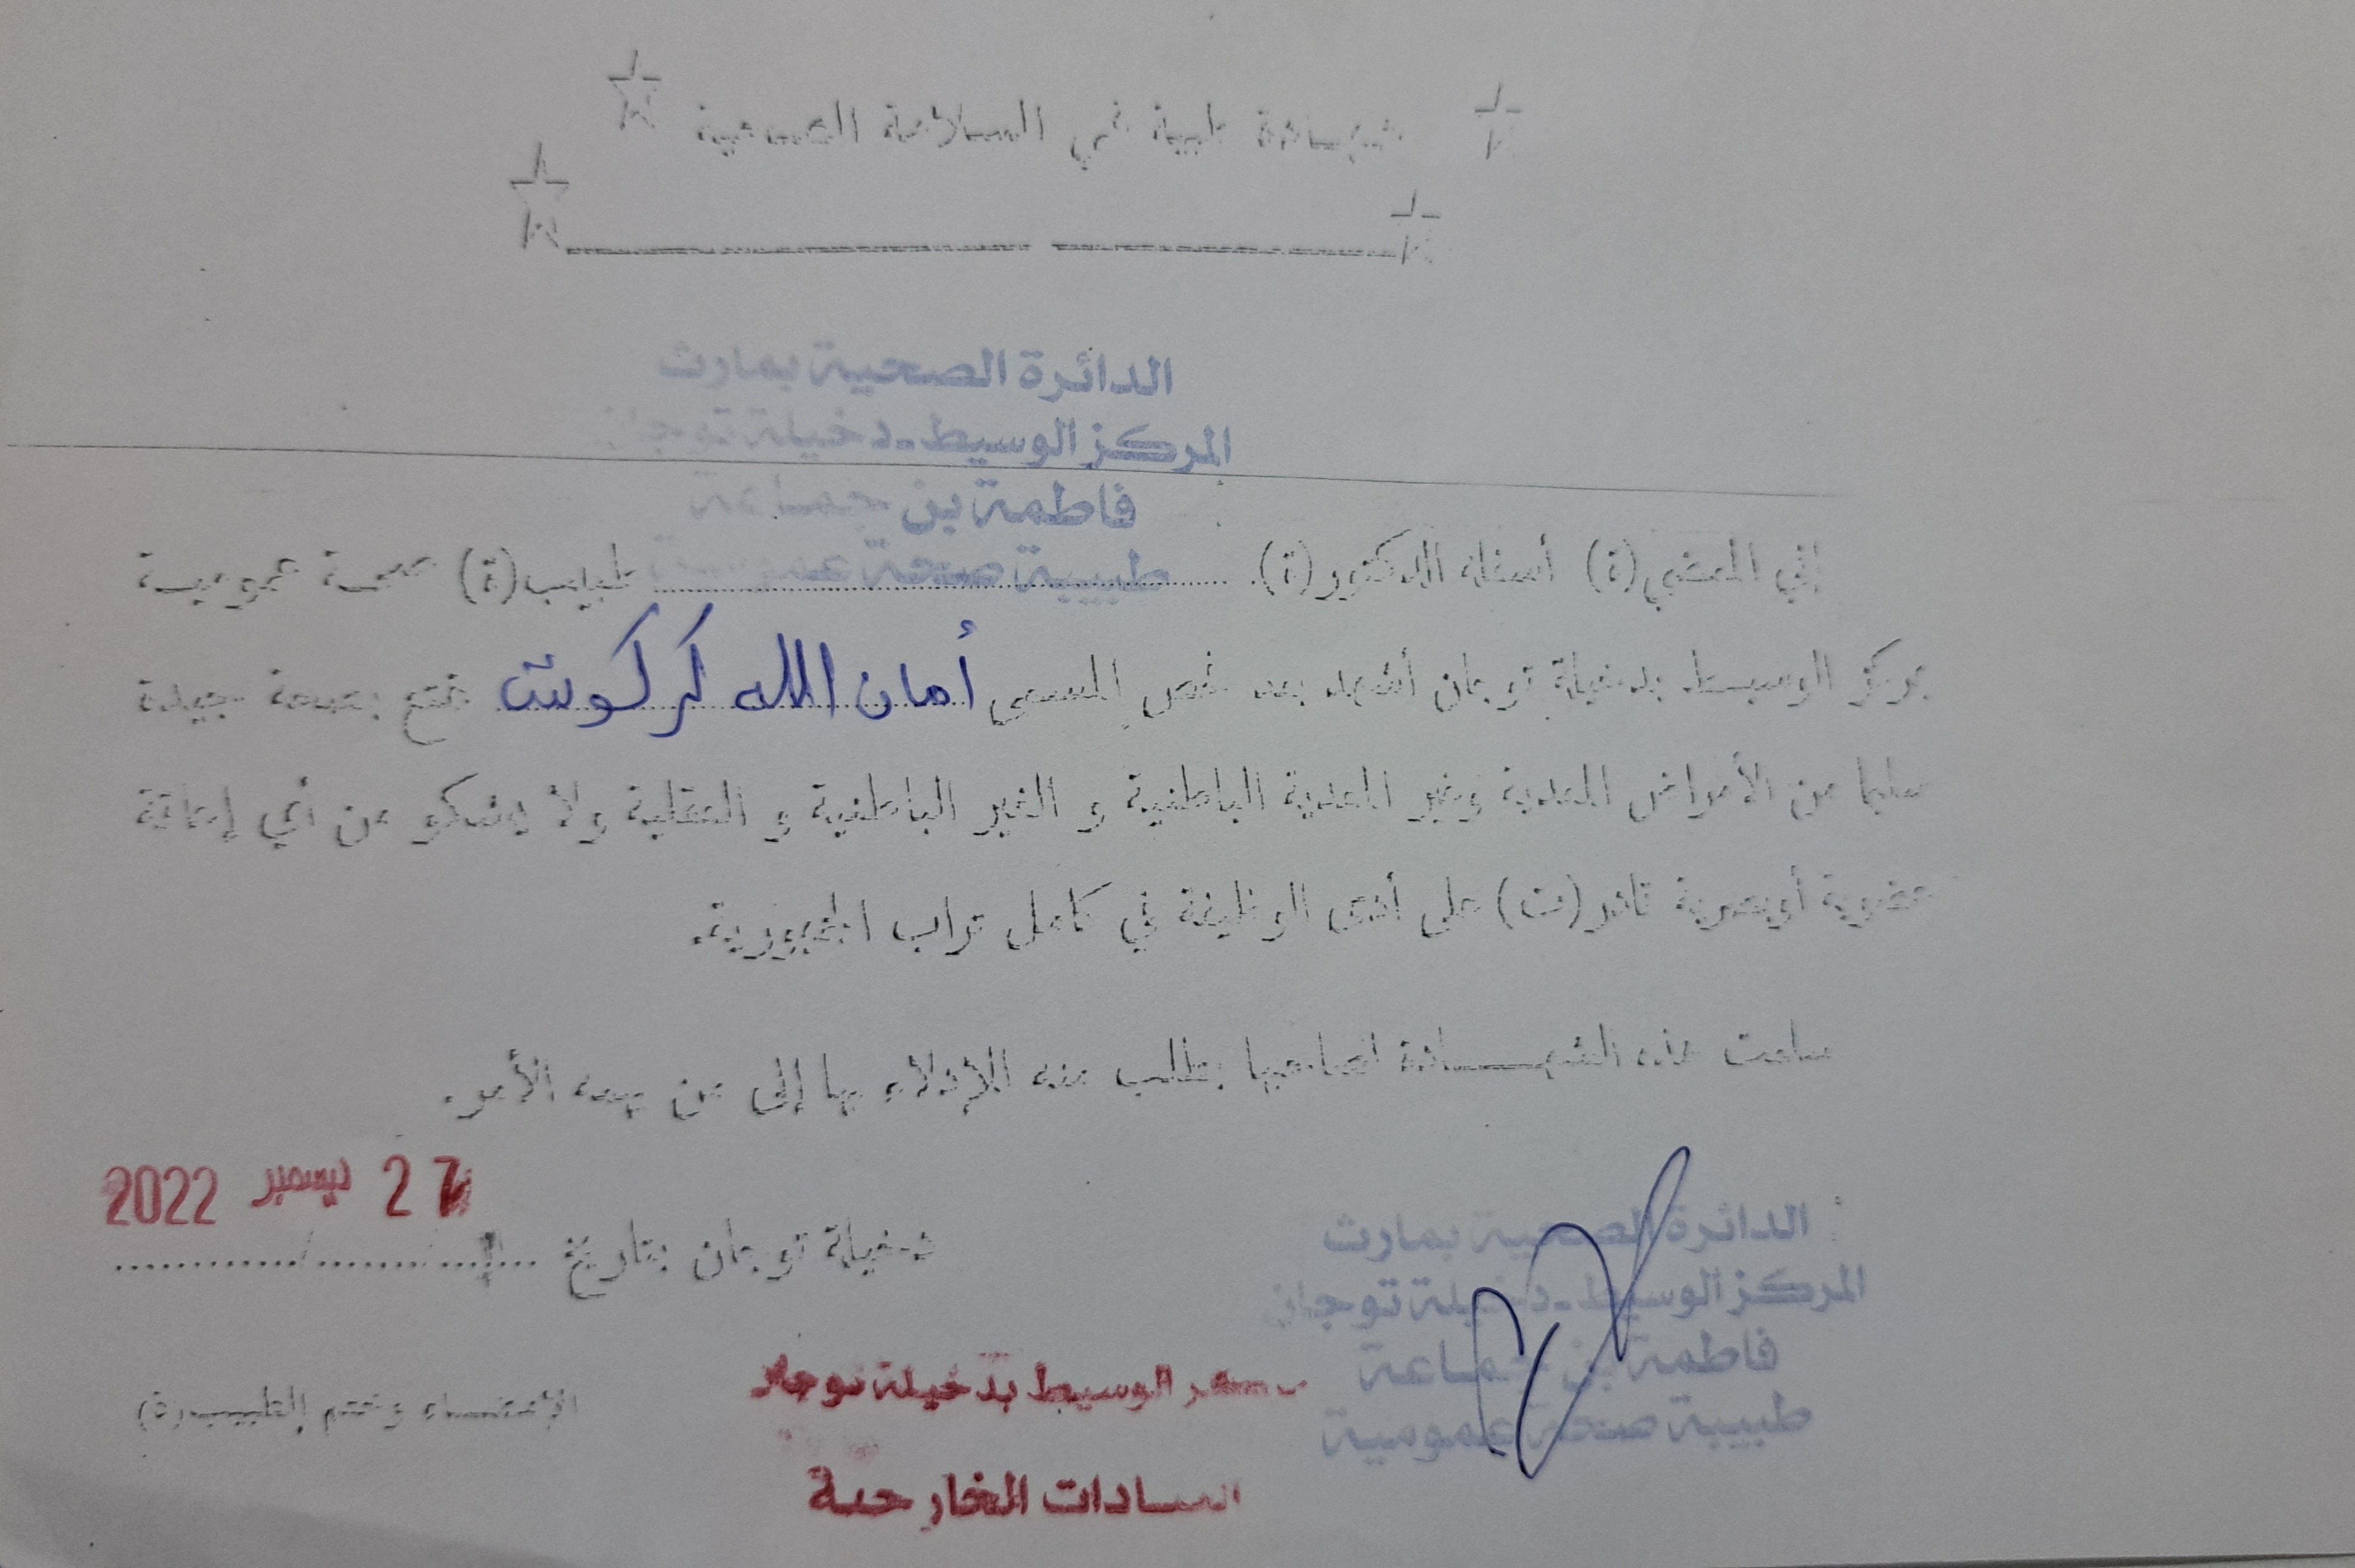 شهادة طبية في السلامة الصحية
الدائرة الصحية بمارث
المركز الوسيط - دخيلة توجان
فاطمة بن جماعة
طبيبة صحة عمومية
إني الممضي(ة) أسفله الدكتور(ة) طبيب(ة) صحة عمومية
بمركز الوسيط بدخيلة توجان أشهد بعد فحص المسمى أمان الله كركوت تمتع بصحة جيدة
سليما من الأمراض المعدية وغير المعدية الباطنية و الغير الباطنية و العقلية ولا يشكو من أي إعاقة
عضوية أوبصرية قادر(ت) على أدى الوظيفة في كامل تراب الجمهورية.
سلمت هذه الشهادة لصاحبها بطلب منه للإدلاء بها إلى من يهمه الأمر.
27 ديسمبر 2022
دخيلة توجان بتاريخ
الدائرة الصحية بمارث
المركز الوسيط - دخيلة توجان
فاطمة بن جماعة
طبيبة صحة عمومية
الوسيط بدخيلة توجان
الإمضاء وختم الطبيب(ة)
العيادات الخارجية